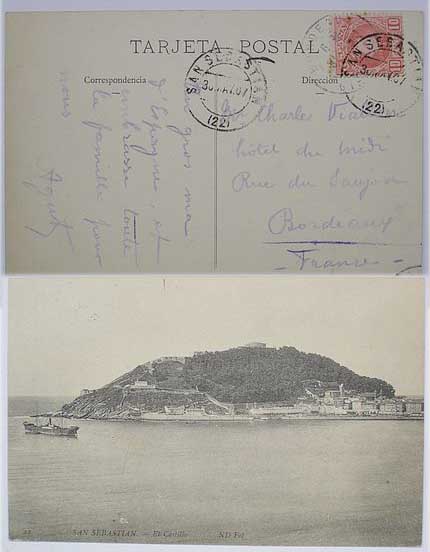 TARJETA POSTAL
Correspondencia
Dirección
SAN SEBASTIAN
30 MAY. 07
(22)
SAN SEBASTIAN
30 MAY. 07
(22)
10
10
gros
d'Espagne, et
embrasse toute
la famille pour
nous
Charles
hôtel du Midi
Rue du
Bordeaux
- France -
22 SAN SEBASTIAN. — El Castillo ND Fot